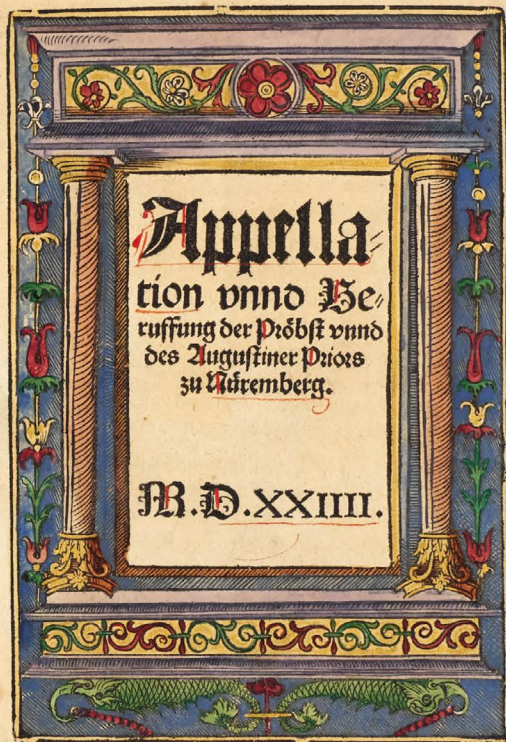 Appella⸗
tion vnnd Be⸗
ruffung der Pröbst vnnd
des Augustiner Priors
zu Nüremberg.
M.D.XXIIII.